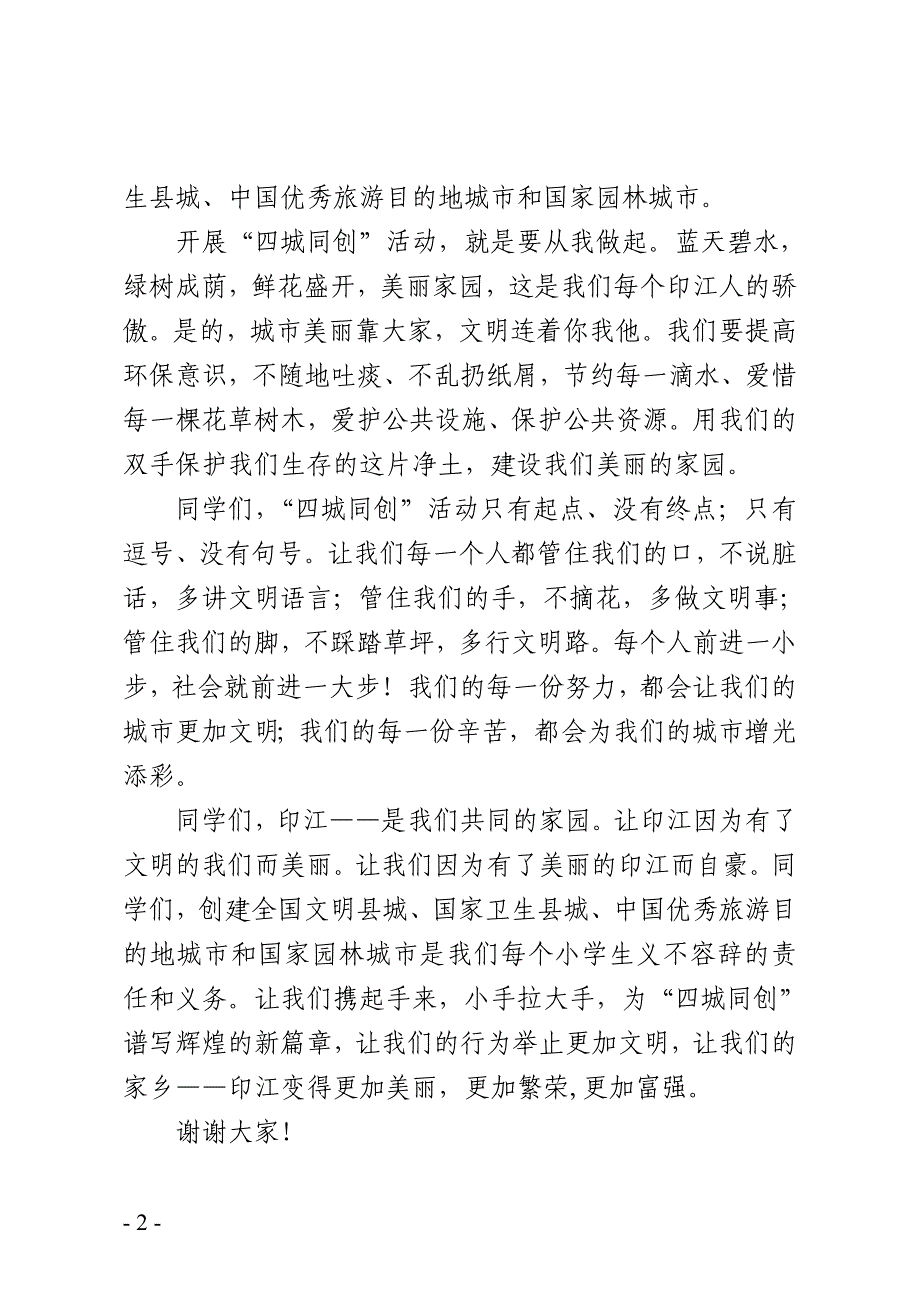 生县城、中国优秀旅游目的地城市和国家园林城市。
开展“四城同创”活动，就是要从我做起。蓝天碧水，
绿树成荫，鲜花盛开，美丽家园，这是我们每个印江人的骄
傲。是的，城市美丽靠大家，文明连着你我他。我们要提高
环保意识，不随地吐痰、不乱扔纸屑，节约每一滴水、爱惜
每一棵花草树木，爱护公共设施、保护公共资源。用我们的
双手保护我们生存的这片净土，建设我们美丽的家园。
同学们，“四城同创”活动只有起点、没有终点；只有
逗号、没有句号。让我们每一个人都管住我们的口，不说脏
话，多讲文明语言；管住我们的手，不摘花，多做文明事；
管住我们的脚，不踩踏草坪，多行文明路。每个人前进一小
步，社会就前进一大步！我们的每一份努力，都会让我们的
城市更加文明；我们的每一份辛苦，都会为我们的城市增光
添彩。
同学们，印江——是我们共同的家园。让印江因为有了
文明的我们而美丽。让我们因为有了美丽的印江而自豪。同
学们，创建全国文明县城、国家卫生县城、中国优秀旅游目
的地城市和国家园林城市是我们每个小学生义不容辞的责
任和义务。让我们携起手来，小手拉大手，为“四城同创”
谱写辉煌的新篇章，让我们的行为举止更加文明，让我们的
家乡——印江变得更加美丽，更加繁荣,更加富强。
谢谢大家！
- 2 -